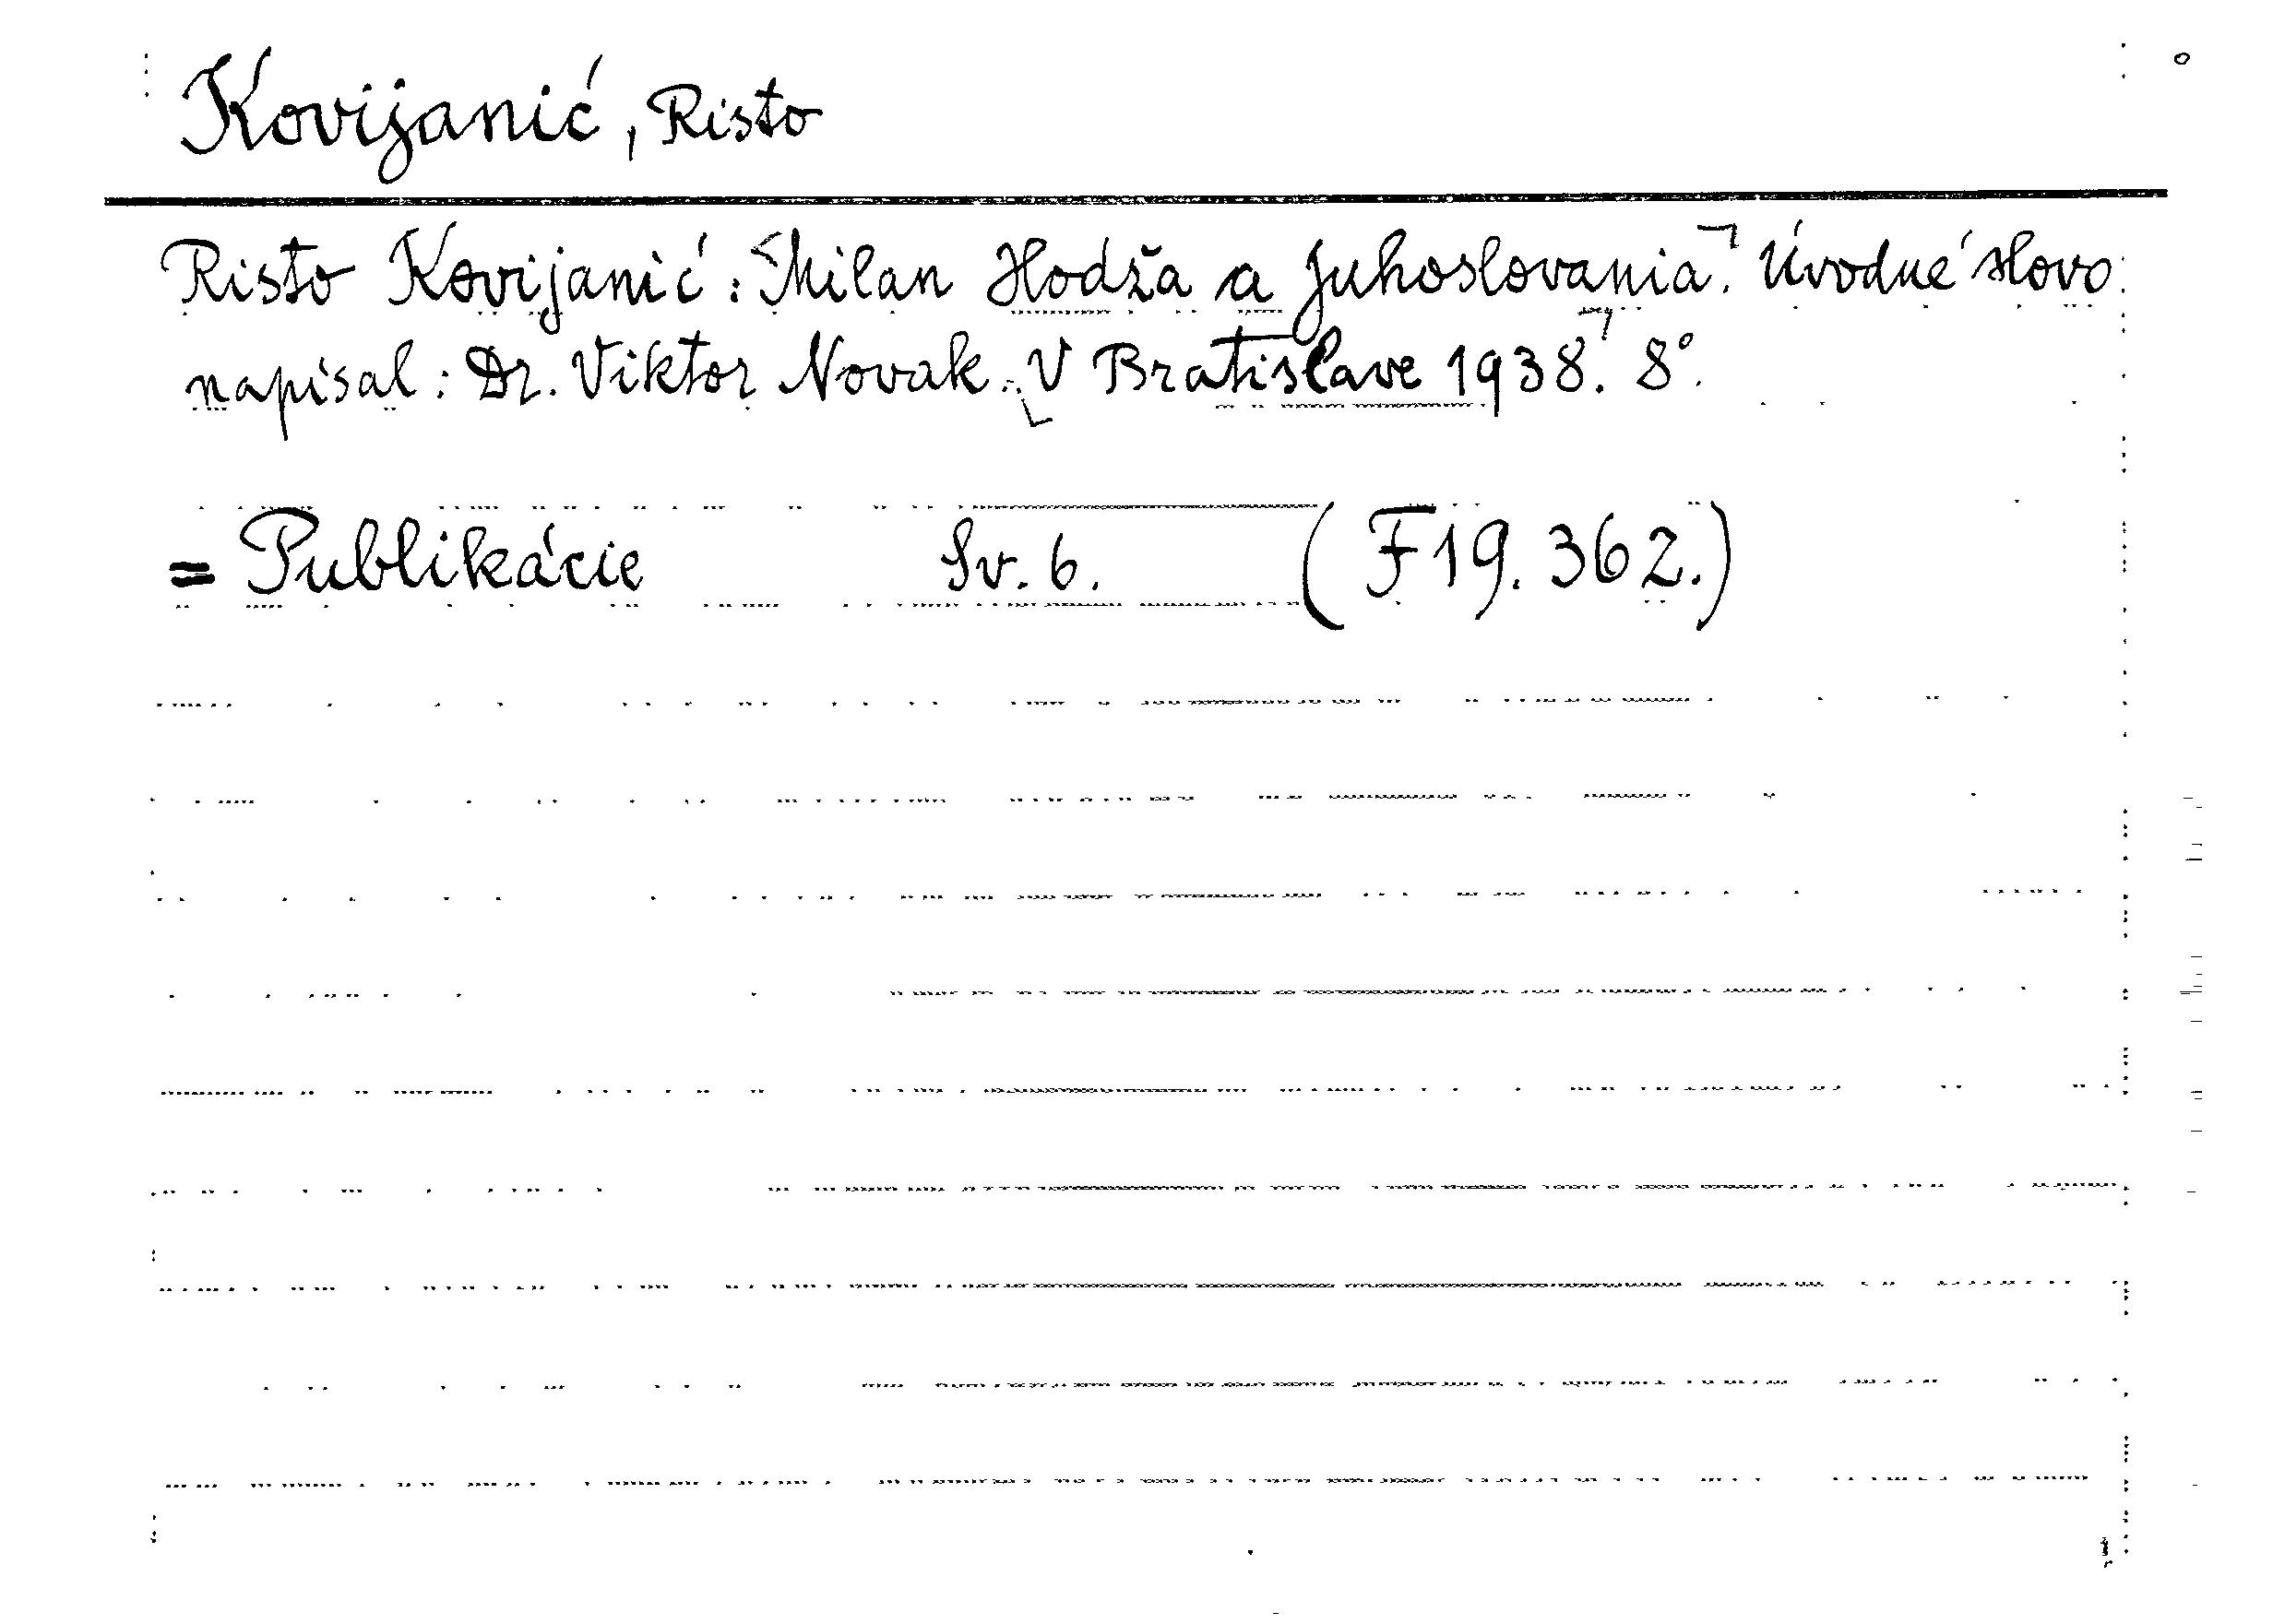 Kovijanić, Risto
Risto Kovijanić: Milan Hodža a Juhoslovania. Úvodné slovo
napísal: Dr. Viktor Novak. V Bratislave 1938. 8°.
= Publikácie Sv. 6. (F19.362.)